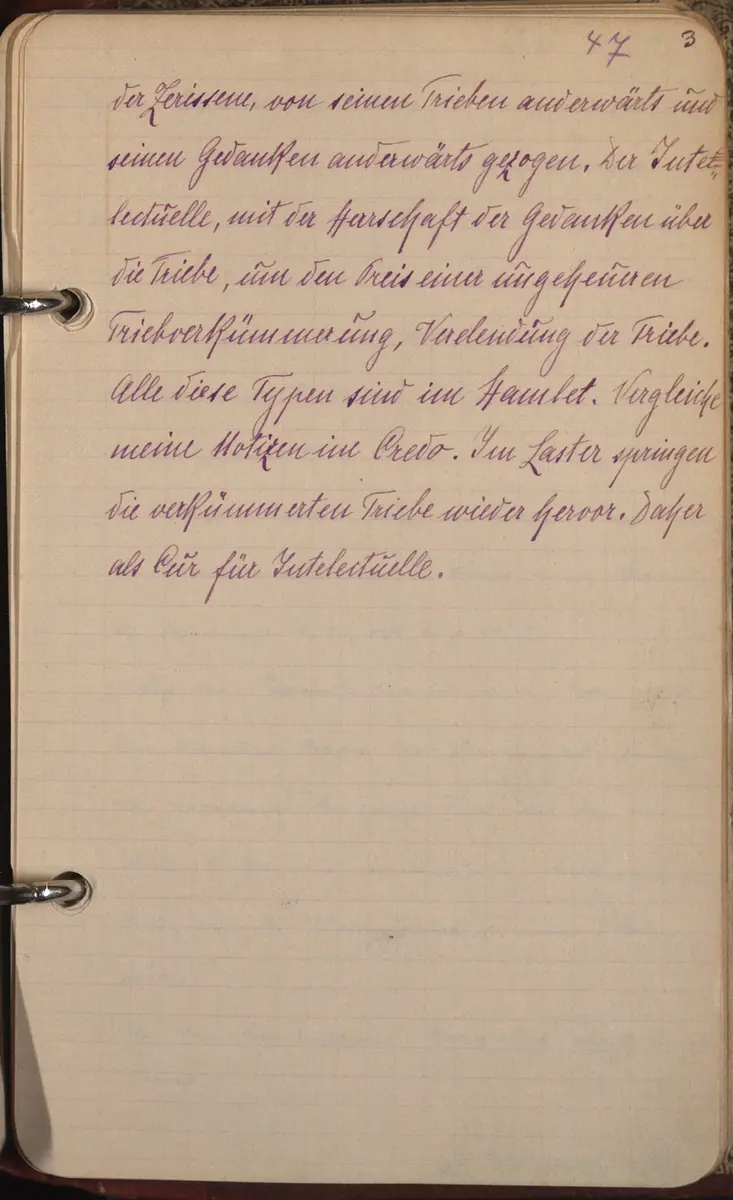 47 3
der Zerissene, von seinen Trieben anderwärts und
seinen Gedanken anderwärts gezogen. Der Intel=
lectuelle, mit der Herschaft der Gedanken über
die Triebe, um den Preis einer ungeheueren
Triebverkümmerung, Verelendung der Triebe.
Alle diese Typen sind im Hamlet. Vergleiche
meine Notizen im Credo. Im Laster springen
die verkümmerten Triebe wieder hervor. Daher
als Cur für Intelectuelle.